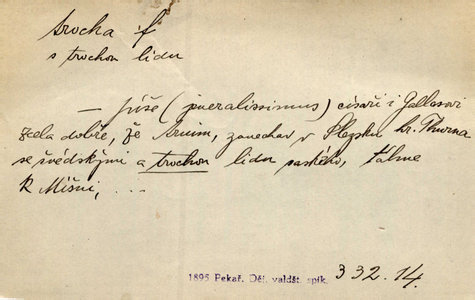 trocha f
s trochou lidu
— píše (generalissimus) císaři i Gallasovi
zcela dobře, že Arnim, zanechav v Slezsku hr. Thurna
se švédskými a trochou lidu saského, táhne
k Míšni, ...
1895 Pekař. Děj. valdšt. spik. 332.14.